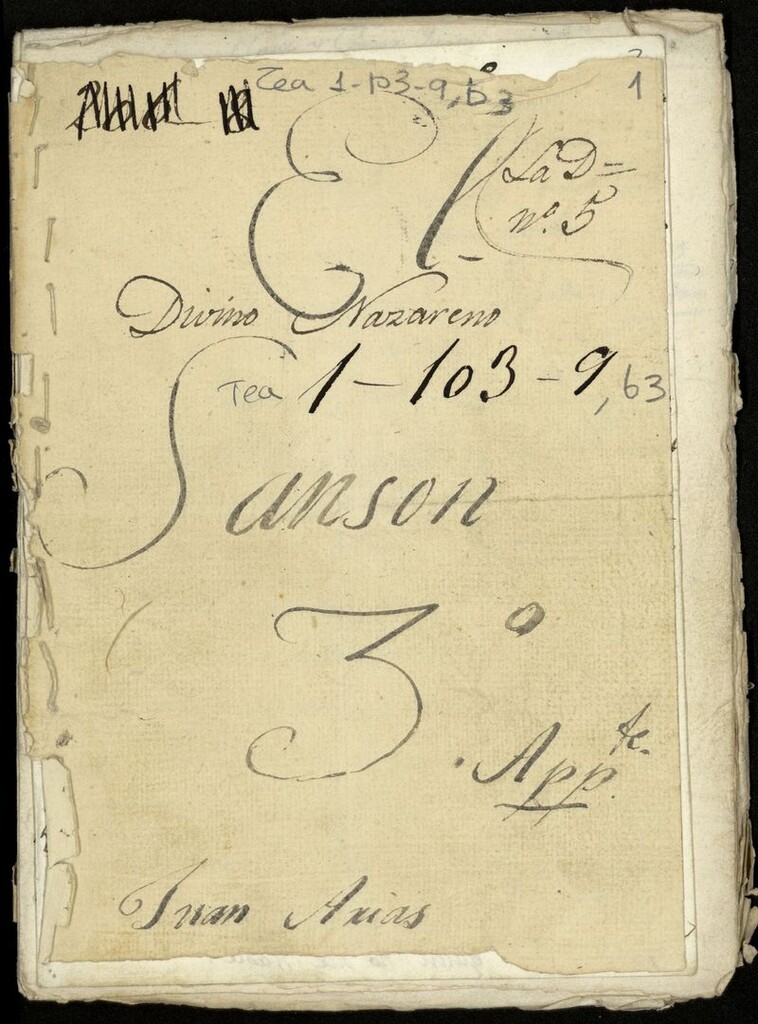 Tea 1-103-9, b3
1
El
La D=
nº. 5
Divino Nazareno
Tea 1-103-9, b3
Sanson
3º
Appte.
Juan Arias